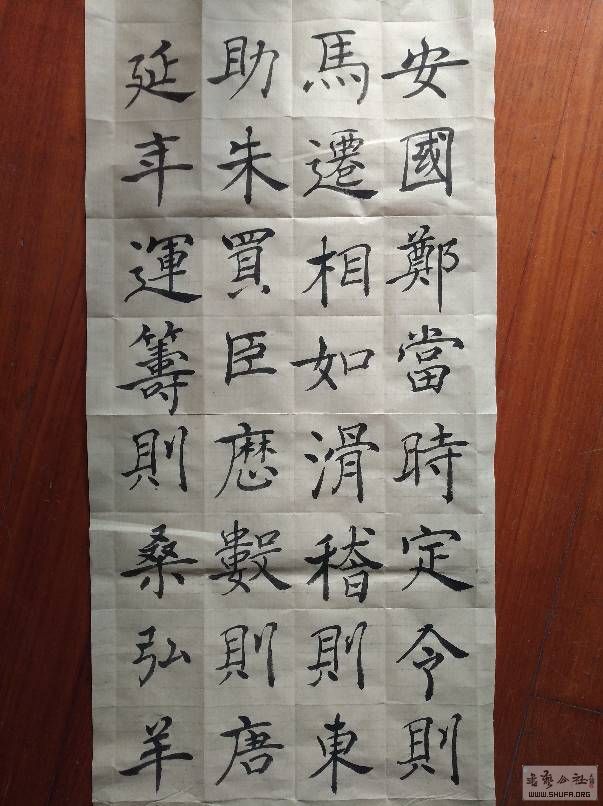 安國鄭當時定令則
馬遷相如滑稽則東
助朱買臣厯數則唐
延年運籌則桑弘羊
書藝公社
WWW.SHUFA.ORG